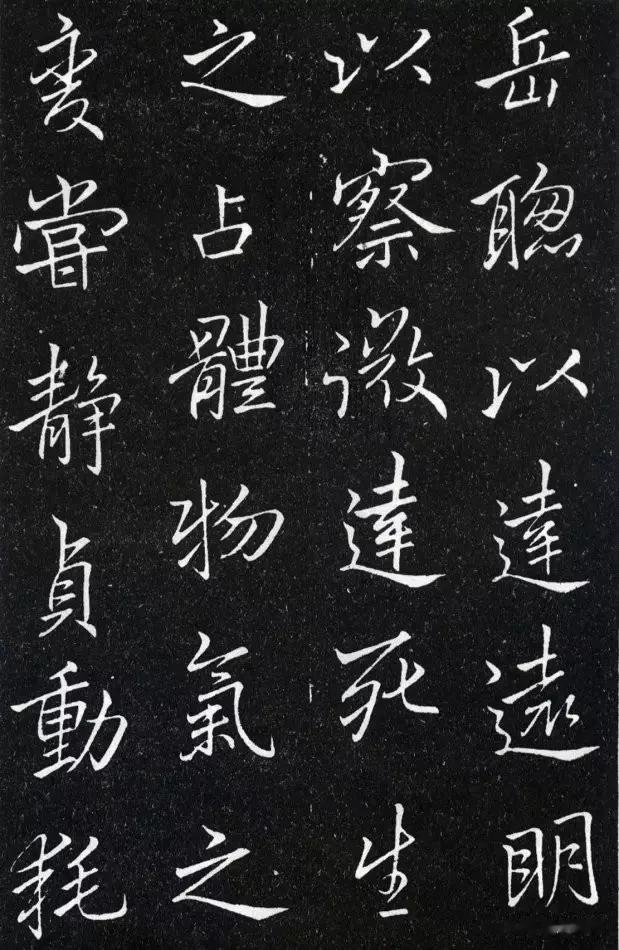 岳聰以達遠明
以察微達死生
之占體物氣之
变嘗静貞動耗